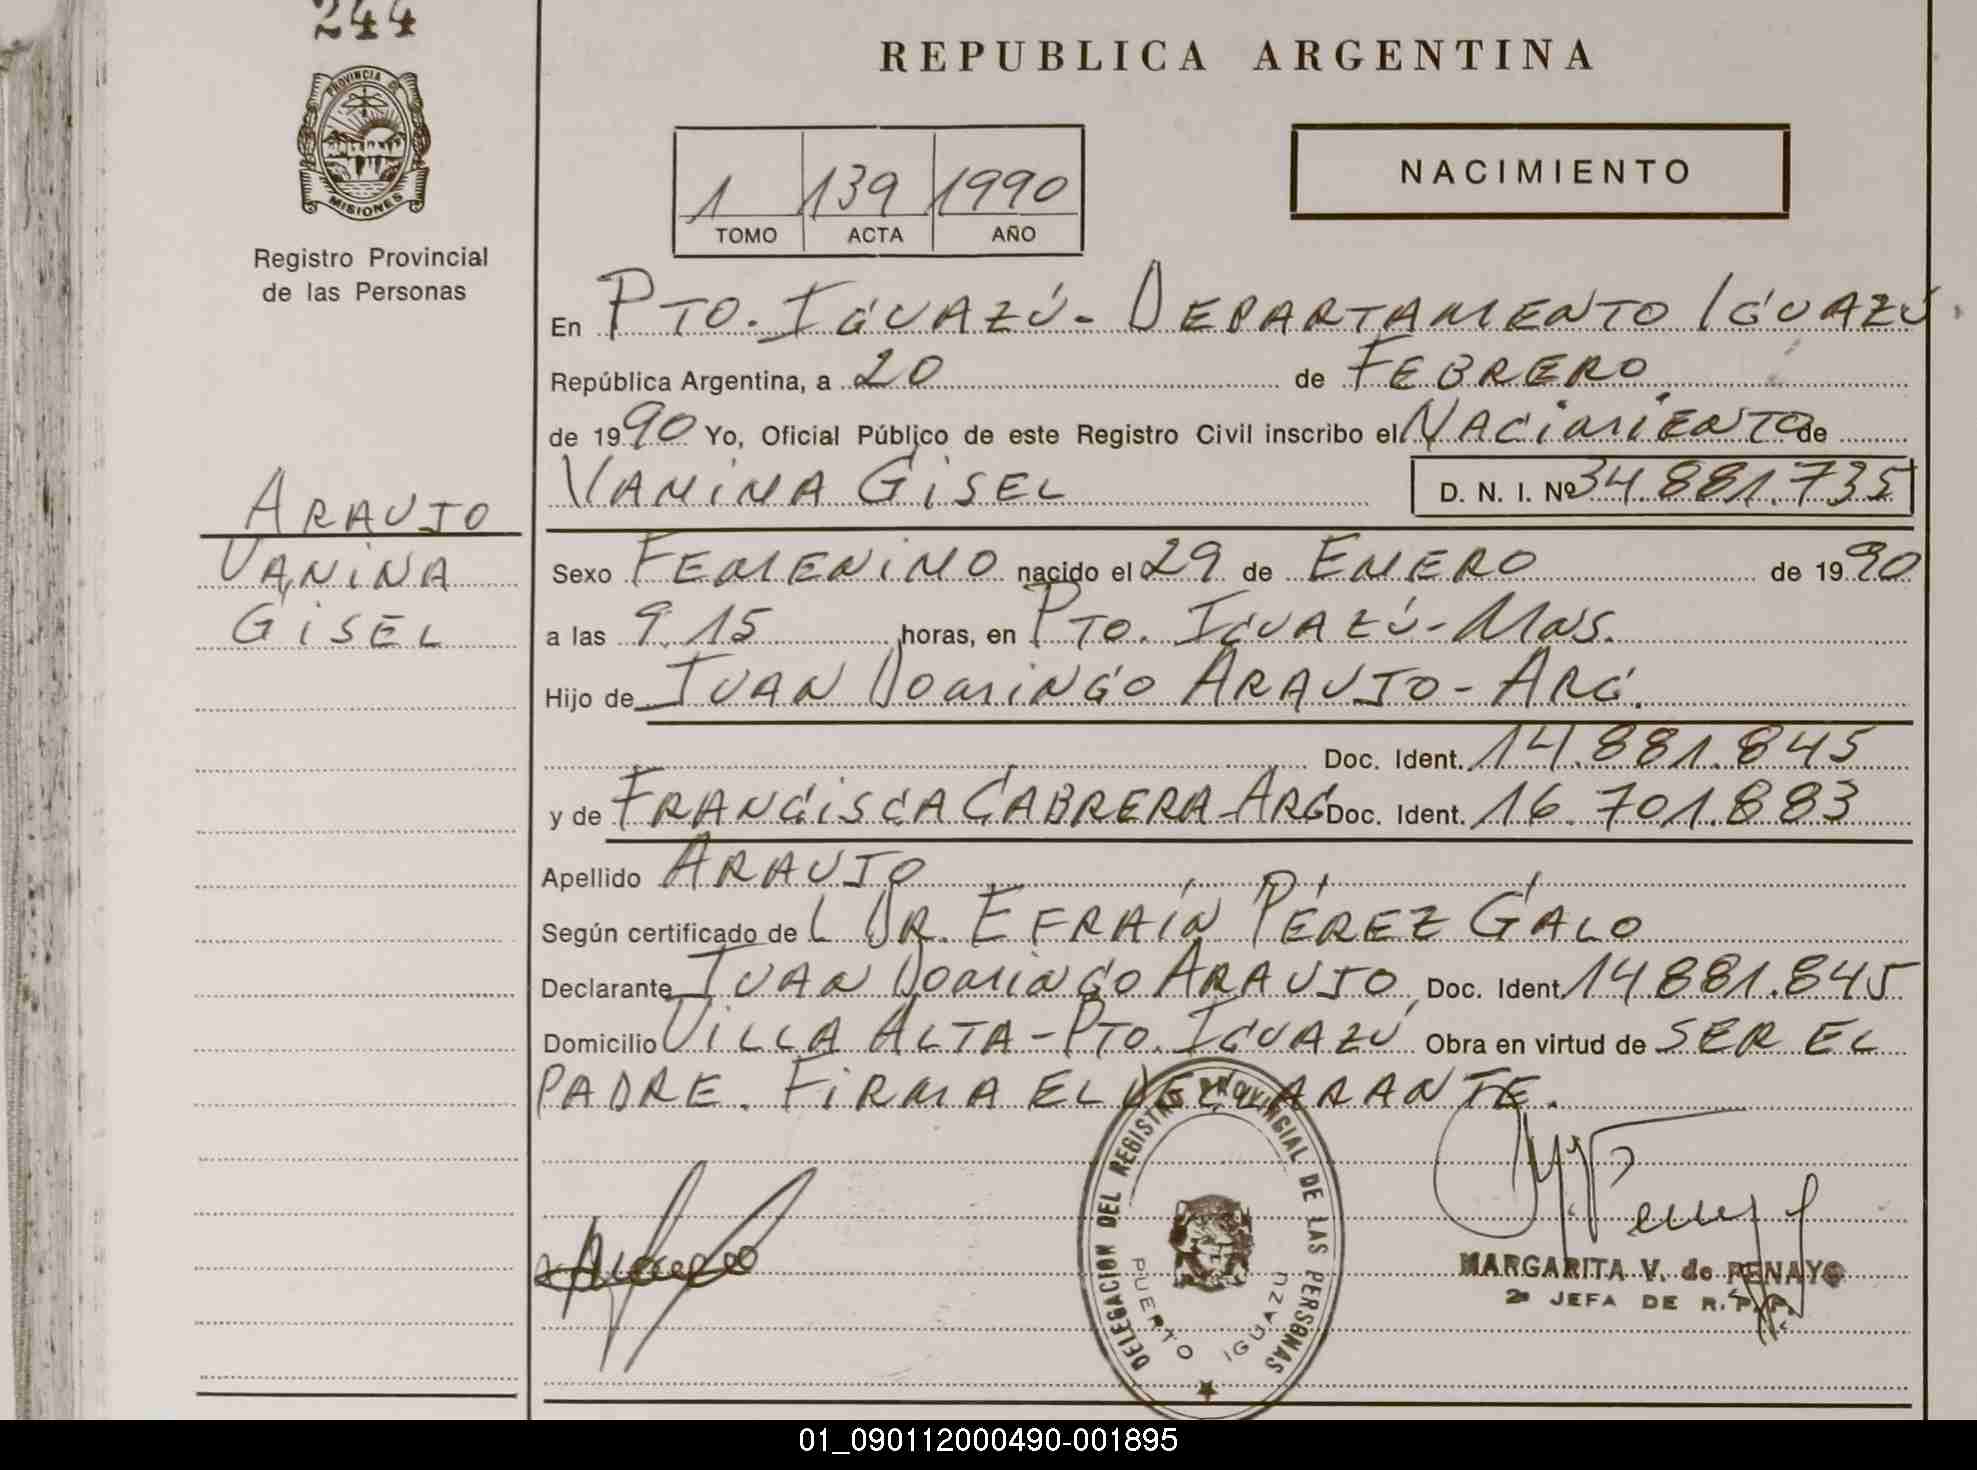 244
REPUBLICA ARGENTINA
PROVINCIA DE
MISIONES
Registro Provincial
de las Personas
1 139 1990
TOMO ACTA AÑO
NACIMIENTO
En PTO. IGUAZÚ - DEPARTAMENTO IGUAZÚ
República Argentina, a 20 de FEBRERO
de 1990 Yo, Oficial Público de este Registro Civil inscribo el NACIMIENTO de
VANINA GISEL D. N. I. Nº 34.881.735
ARAUJO
VANINA
GISEL
Sexo FEMENINO nacido el 29 de ENERO de 1990
a las 9.15 horas, en PTO. IGUAZÚ - MNS.
Hijo de JUAN DOMINGO ARAUJO - ARG.
Doc. Ident. 14.881.845
y de FRANCISCA CABRERA - ARG Doc. Ident. 16.701.883
Apellido ARAUJO
Según certificado de L DR. EFRAÍN PÉREZ GALO
Declarante JUAN DOMINGO ARAUJO Doc. Ident. 14.881.845
Domicilio VILLA ALTA - PTO. IGUAZÚ Obra en virtud de SER EL
PADRE. FIRMA EL DECLARANTE.
DELEGACION DEL REGISTRO PROVINCIAL DE LAS PERSONAS
PUERTO IGUAZU
MARGARITA V. de PENAYO
2ª JEFA DE R. P. P.
01_090112000490-001895